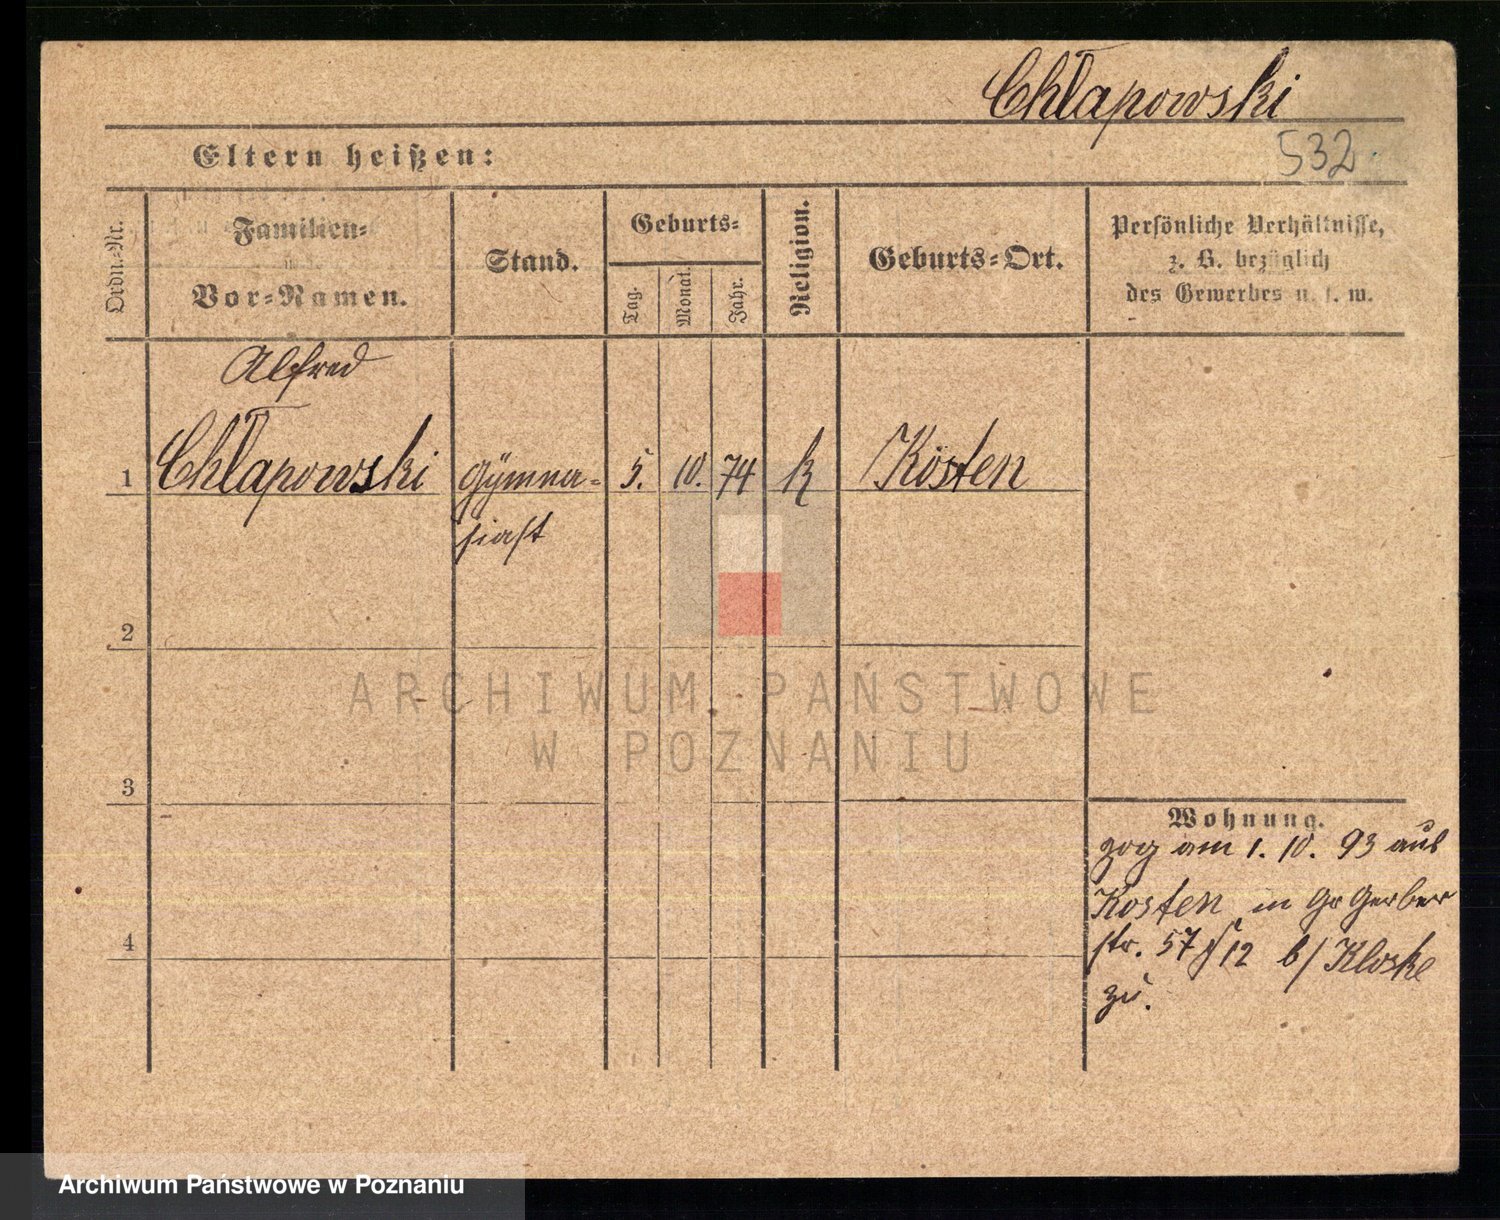 Chłapowski
Eltern heißen:
532.
Ordn.-Nr.
Familien-
Vor-Namen.
Stand.
Geburts-
Tag.
Monat.
Jahr.
Religion.
Geburts-Ort.
Persönliche Verhältnisse,
z. B. bezüglich
des Gewerbes u. s. w.
Alfred
1 Chłapowski Gymna- 5. 10. 74 k Kosten
siast
2
3
4
Wohnung.
zog am 1. 10. 93 aus
Kosten in Gr Gerber
str. 57 12 b/ Kloske
zu.
ARCHIWUM PAŃSTWOWE
W POZNANIU
Archiwum Państwowe w Poznaniu